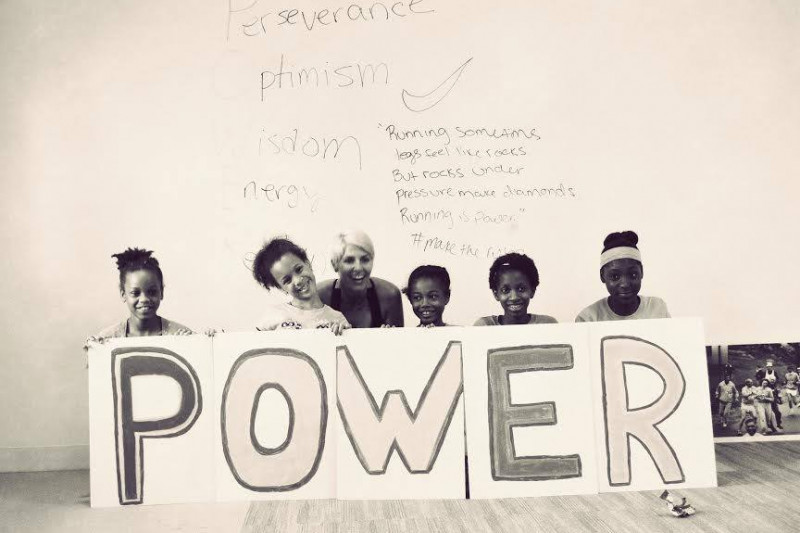 Perseverance
ptimism
isdom
nergy
"Running sometims
legs feel like rocks
But rocks under
pressure make diamonds
Running is power."
#make the
POWER